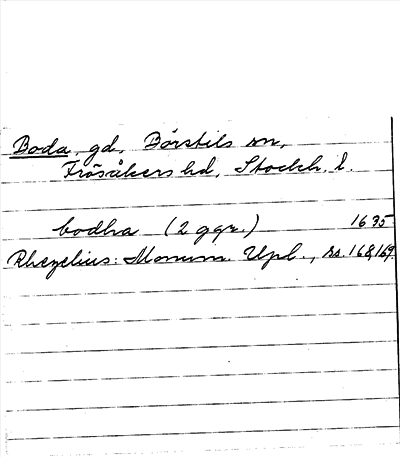 Boda, gd, Börstils sn,
Frösåkers hd, Stockh. l.
bodha (2 ggr.) 1635
Rhezelius: Monum. Upl., ss. 168, 169.